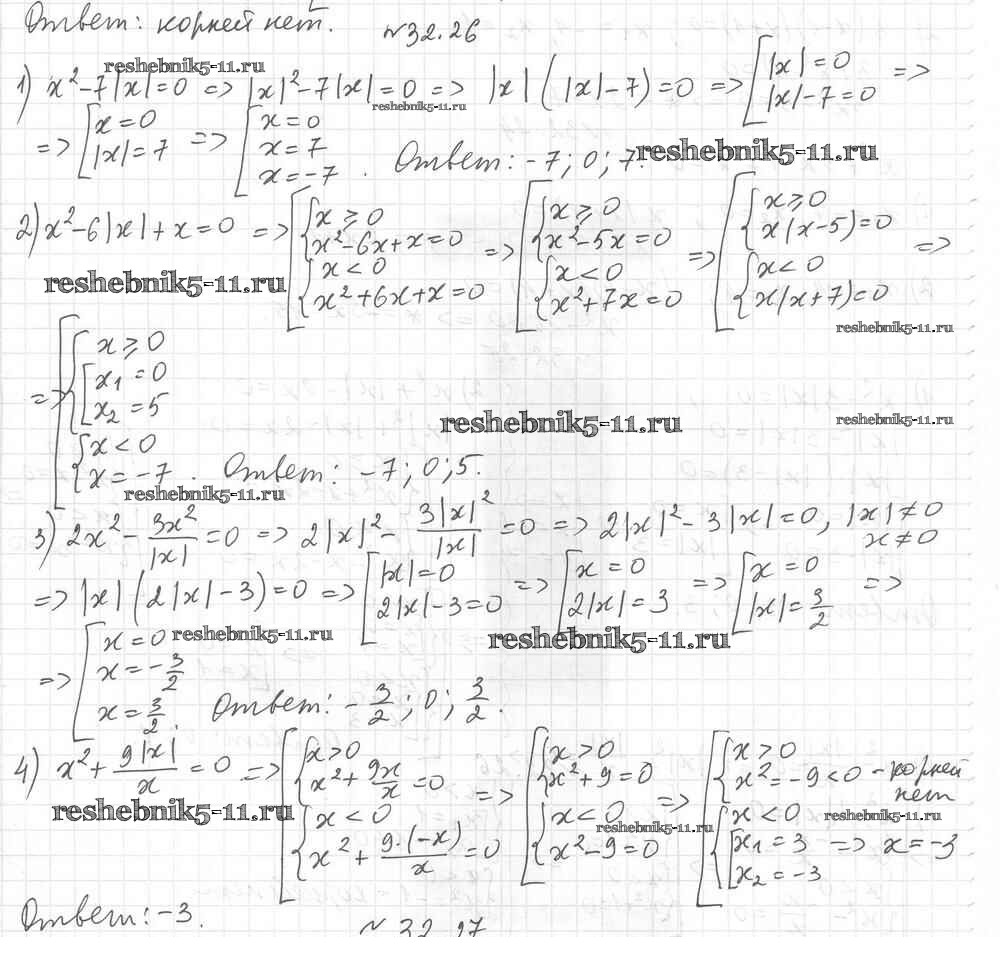 Ответ: корней нет. №32.26
reshebnik5-11.ru
1) x²-7|x|=0 => |x|²-7|x|=0 => |x|(|x|-7)=0 => [|x|=0 |x|-7=0 =>
reshebnik5-11.ru
=> [x=0 |x|=7 => [x=0 x=7 x=-7. Ответ: -7; 0; 7.
reshebnik5-11.ru
2) x²-6|x|+x=0 => [{x≥0 x²-6x+x=0 {x<0 x²+6x+x=0 => [{x≥0 x²-5x=0 {x<0 x²+7x=0 => [{x≥0 x(x-5)=0 {x<0 x(x+7)=0 =>
reshebnik5-11.ru
reshebnik5-11.ru
=> [{x≥0 [x₁=0 x₂=5 {x<0 x=-7. Ответ: -7; 0; 5.
reshebnik5-11.ru
reshebnik5-11.ru
reshebnik5-11.ru
3) 2x²-3x²/|x|=0 => 2|x|²-3|x|²/|x|=0 => 2|x|²-3|x|=0, |x|≠0 x≠0
=> |x|(2|x|-3)=0 => [|x|=0 2|x|-3=0 => [x=0 2|x|=3 => [x=0 |x|=3/2 =>
reshebnik5-11.ru
reshebnik5-11.ru
=> [x=0 x=-3/2 x=3/2. Ответ: -3/2; 0; 3/2.
4) x²+9|x|/x=0 => [{x>0 x²+9x/x=0 {x<0 x²+9·(-x)/x=0 => [{x>0 x²+9=0 {x<0 x²-9=0 => [{x>0 x²=-9<0 - корней нет {x<0 [x₁=3 x₂=-3 => x=-3
reshebnik5-11.ru
reshebnik5-11.ru
reshebnik5-11.ru
Ответ: -3.
№32.27